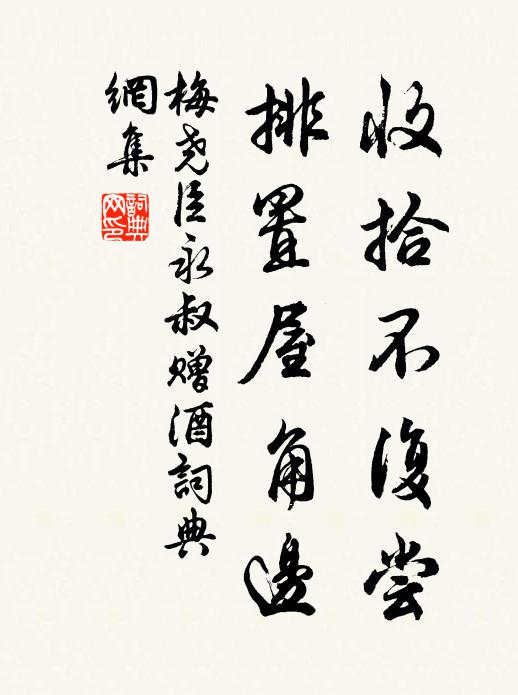 收拾不復尝
排置屋角邊
梅尧臣永叔赠酒詞典
網集
詞典
网印